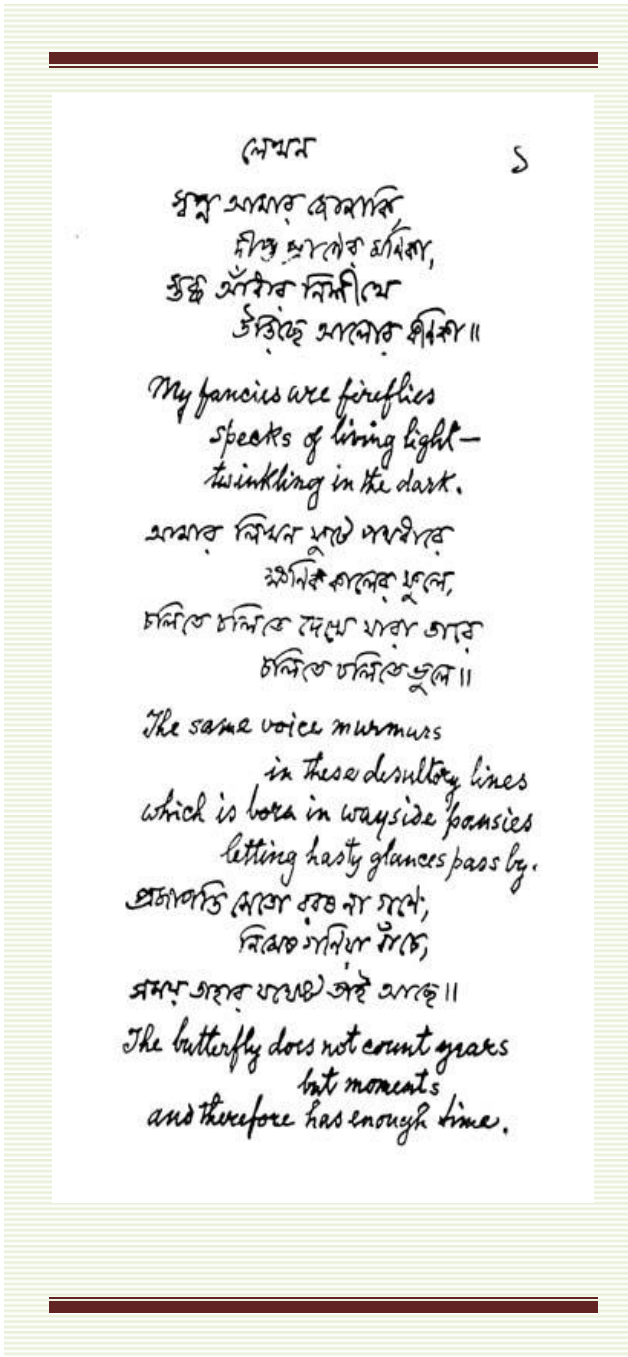 লেখন
১
স্বপ্ন আমার জোনাকি,
দীপ্ত প্রাণের মণিকা,
স্তব্ধ আঁধার নিশীথে
উড়িছে আলোর কণিকা॥
My fancies are fireflies
specks of living light—
twinkling in the dark.
আমার লিখন ফুটে পথধারে
ক্ষণিক কালের ফুলে,
চলিতে চলিতে দেখে যারা তারে
চলিতে চলিতে ভুলে॥
The same voice murmurs
in these desultory lines
which is born in wayside pansies
letting hasty glances pass by.
প্রজাপতি সেতো বরষ না গণে,
নিমেষ গণিয়া বাঁচে,
সময় তাহার যথেষ্ট তাই আছে॥
The butterfly does not count years
but moments
and therefore has enough time.